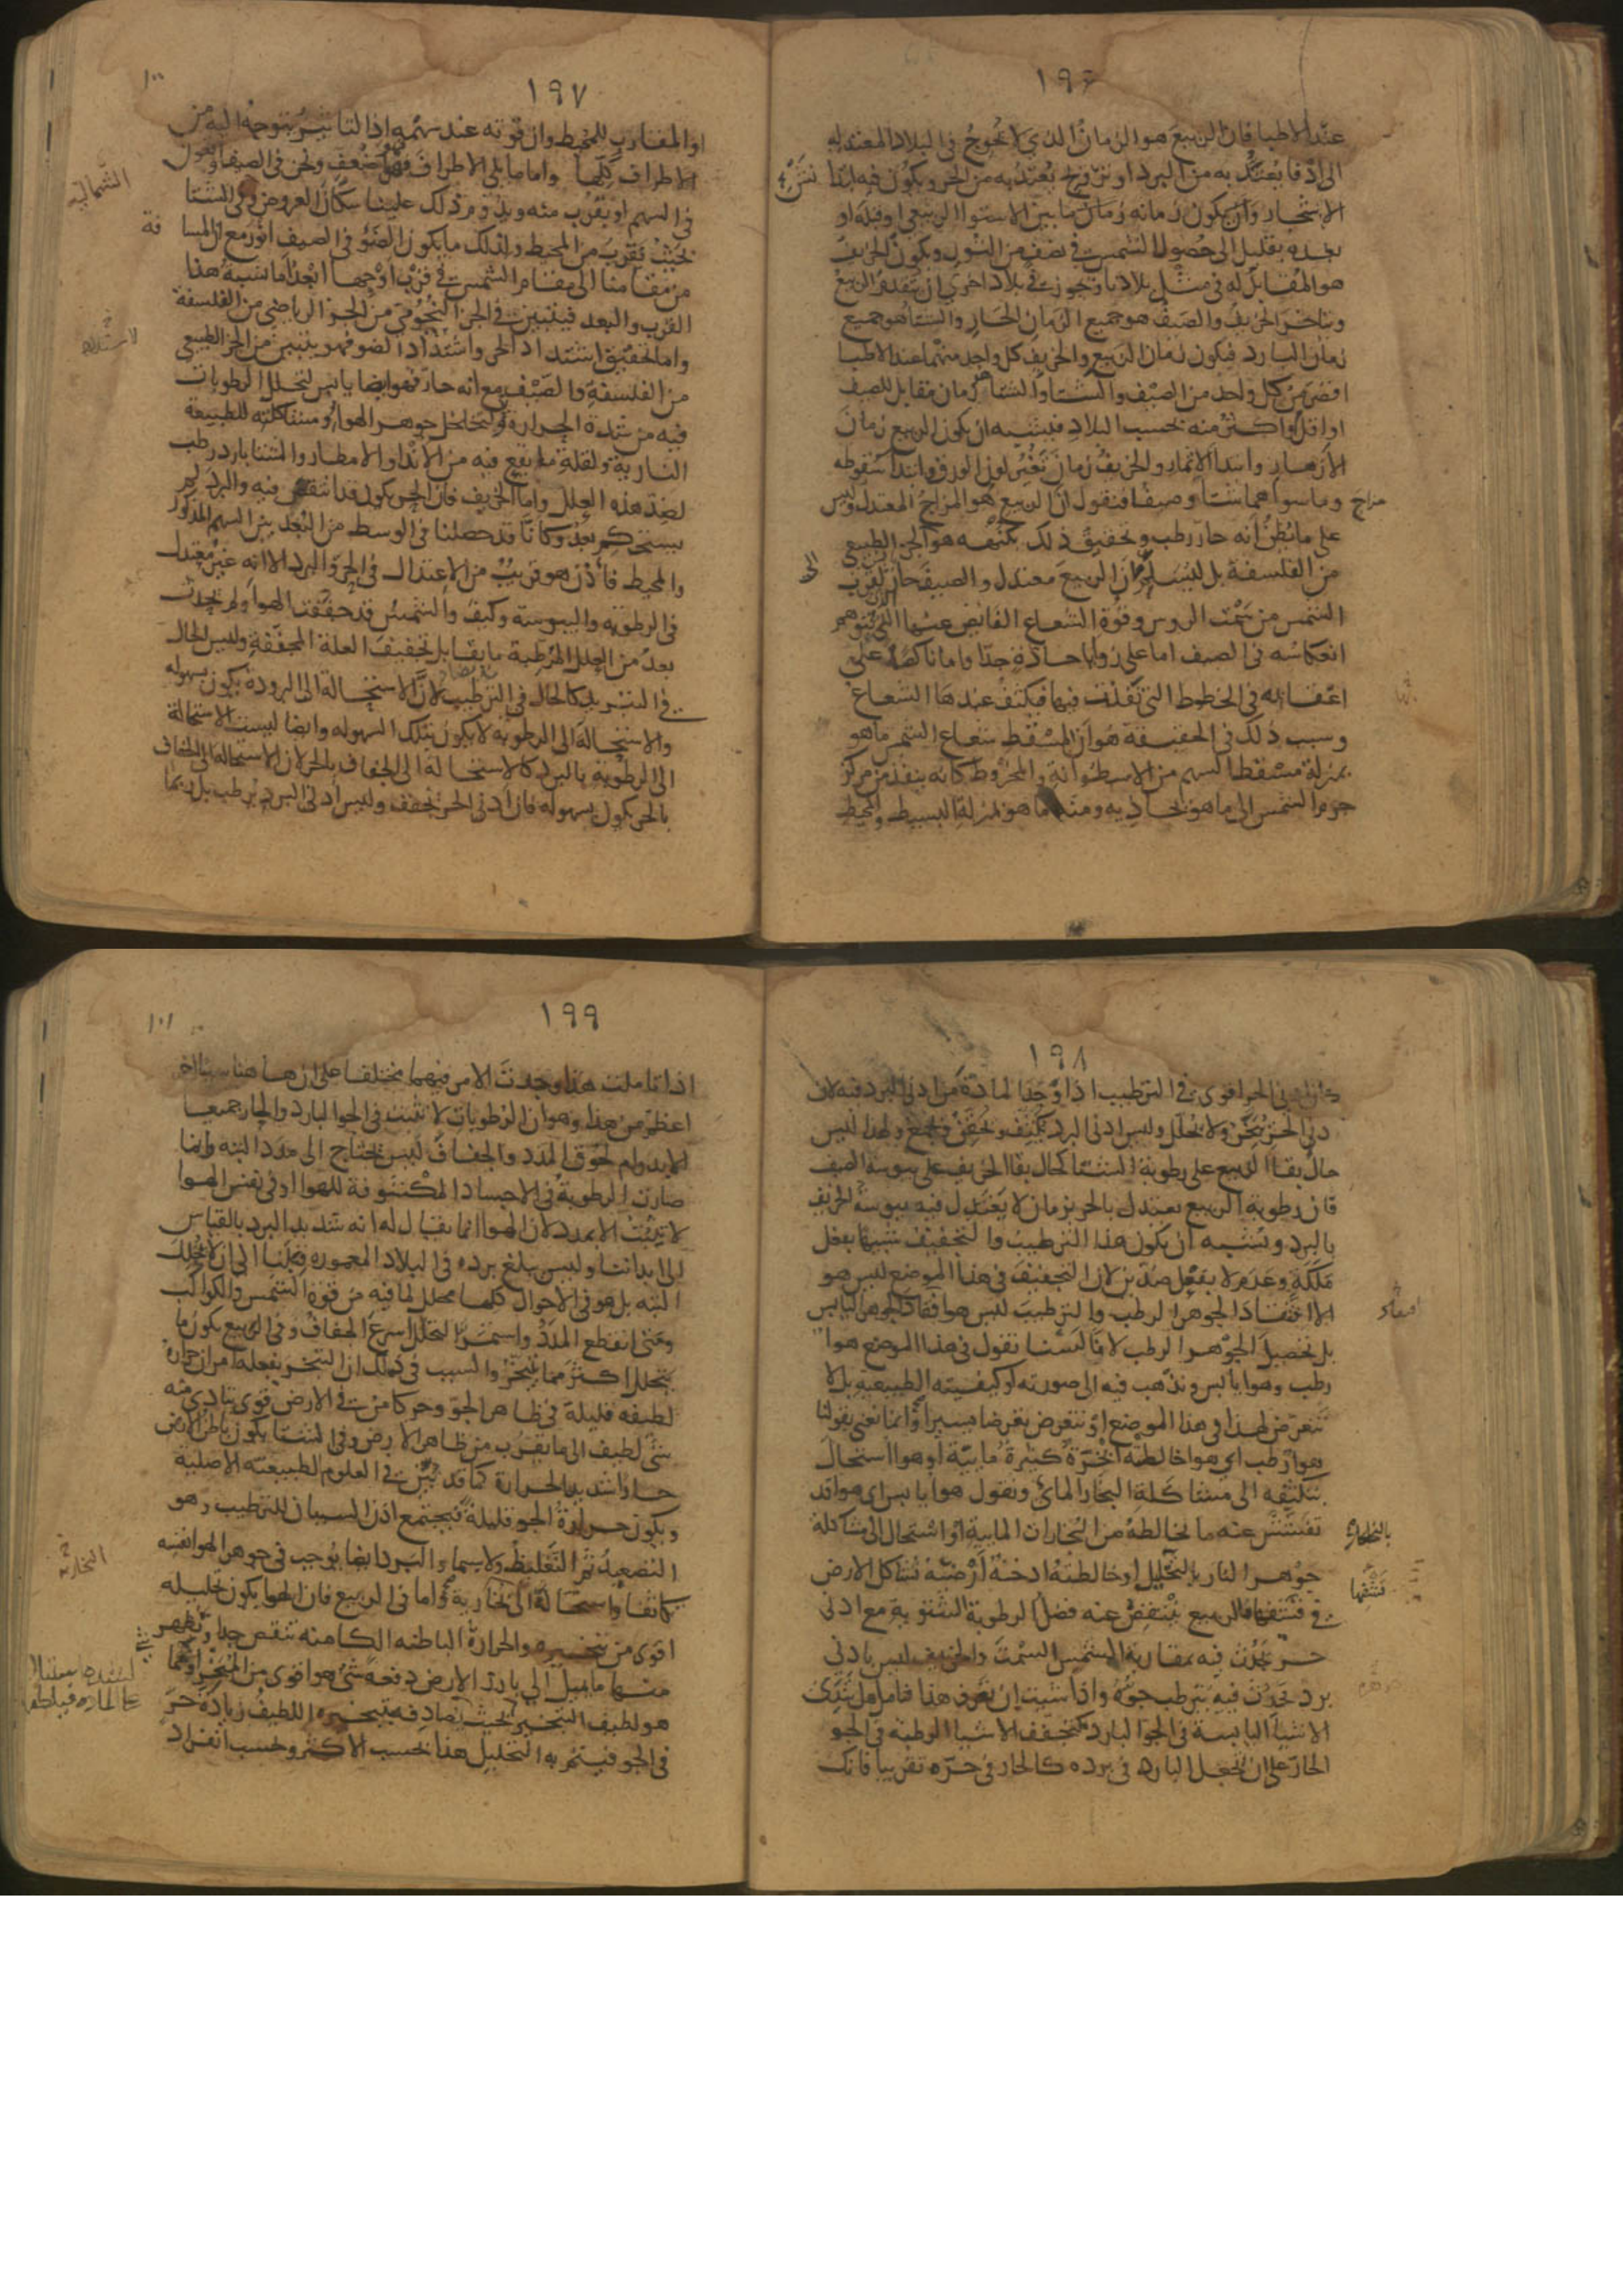 ١٩٦
عند الاطبا فان الربيع هو الزمان الذي لا يحوج في البلاد المعتدلة
الى ادفا يعتد به من البرد او ترويح يعتد به من الحر ويكون فيه ابتدا
نشو
الاشجار وان يكون زمانه زمان ما بين الاستوا الربيعي او قبله او
بعده بقليل الى حصول الشمس في نصف من الثور ويكون الخريف
هو المقابل له في مثل بلادنا ويجوز في بلاد اخرى ان يتقدم الربيع
ويتاخر الخريف والصيف هو جميع الزمان الحار والشتا هو جميع
زمان البارد فيكون زمان الربيع والخريف كل واحد منهما عند الاطبا
اقصر من كل واحد من الصيف والشتا والشتا زمان مقابل للصيف
او اقل واكثر منه بحسب البلاد فيشبه ان يكون الربيع زمان
الازهار وابتدا الاثمار والخريف زمان تغير لون الورق وابتدا سقوطه
وما سواهما شتا وصيفا فنقول ان الربيع هو المزاج المعتدل وليس
مزاج
على ما يظن انه حار رطب وتحقيق ذلك بكنهه هو الى الجزء الطبيعي
من الفلسفة بل ليسلم ان الربيع معتدل والصيف حار لقرب
الشمس من سمت الروس وقوة الشعاع الفايض عنها الذي يتوهم
انعكاسه في الصيف اما على زوايا حادة جدا واما ناكصا على
اعقابه في الخطوط التي نفذت فيها فيكثف عندها الشعاع
وسبب ذلك في الحقيقة هو ان المسقط شعاع الشمس ما هو
بمنزلة مسقط السهم من الاسطوانة والمخروط كانه ينفذ من مركز
جرم الشمس الى ما هو محاذيه ومنه ما هو بمنزلة البسيط والمحيط
١٩٧
١٠٠
او المقارب للمحيط وان قوته عند سهمه اذ التاثير يتوجه اليه من
الاطراف كلها واما ما يلي الاطراف فهو اضعف ونحن في الصيف واقعون
في السهم او بقرب منه ويدوم ذلك علينا سكان العروض وفي الشتا
الشمالية
بحيث يقرب من المحيط ولذلك ما يكون الضو في الصيف انور مع ان المسا
فة
من مقامنا الى مقام الشمس في قرب اوجها ابعد اما نسبة هذا
القرب والبعد فيتبين في الجزء النجومي من الجزء الرياضي من الفلسفة
واما تحقيق اشتداد الحر واشتداد الضو فهو يتبين من الجزء الطبيعي
من الفلسفة والصيف مع انه حار فهو ايضا يابس لتحلل الرطوبات
فيه من شدة الحرارة ولتخلخل جوهر الهوا ومشاكلته للطبيعة
النارية ولقلة ما يقع فيه من الاندا والامطار والشتا بارد رطب
لضد هذه العلل واما الخريف فان الحر يكون قد انتقص فيه والبرد لم
يستحكم بعد وكانا قد حصلنا في الوسط من البعد بين السهم المذكور
والمحيط فاذن هو قريب من الاعتدال في الحر والبرد الا انه غير معتدل
في الرطوبة واليبوسة وكيف والشمس قد جففت الهوا ولم يحدث
بعد من العلل المرطبة ما يقابل تجفيف العلة المجففة وليس الحال
في التبريد كالحال في الترطيب لان الاستحالة الى البرودة يكون بسهولة
والاستحالة الى الرطوبة لا يكون بتلك السهولة وايضا ليست الاستحالة
الى الرطوبة بالبرد كالاستحالة الى الجفاف بالحر لان الاستحالة الى الجفاف
بالحر يكون بسهولة فان ادنى الحر يجفف وليس ادنى البرد يرطب بل ربما
١٩٨
كان ادنى الحر اقوى في الترطيب اذا وجد المادة من ادنى البرد فيه لان
دنى الحر يبخر ولا يحلل وليس ادنى البرد يكثف ويحقن ويجمع ولهذا ليس
حال بقا الربيع على رطوبة الشتا كحال بقا الخريف على يبوسة الصيف
فان رطوبة الربيع يعتدل بالحر بزمان لا يعتدل فيه يبوسة الخريف
بالبرد ويشبه ان يكون هذا الترطيب والتجفيف شبيها بفعل
ملكة وعدم لا بفعل ضدين لان التجفيف في هذا الموضع ليس هو
الا افتقاد الجوهر الرطب والترطيب ليس هو افقاد الجوهر اليابس
افقاد
بل تحصيل الجوهر الرطب لانا لسنا نقول في هذا الموضع هوا
رطب وهوا يابس ونذهب فيه الى صورته او كيفيته الطبيعية بل لا
نتعرض لهذا في هذا الموضع او نتعرض تعرضا يسيرا وانما نعني بقولنا
هوا رطب اي هوا خالطته ابخرة كثيرة مايية او هوا استحال
بتكثفه الى مشاكلة البخار المائي ونقول هوا يابس اي هوا قد
تفشش عنه ما يخالطه من البخارات المايية او استحال الى مشاكلة
جوهر النار بالتخلخل او خالطته ادخنة ارضية تشاكل الارض
في تنشفها فالربيع ينتفض عنه فضل الرطوبة الشتوية مع ادنى
نشفها
حر يحدث فيه بمقاربة الشمس السمت والخريف ليس بادنى
برد يحدث فيه يترطب جوه واذا شيت ان تعرف هذا فتامل هل تندى
الاشيا اليابسة في الجو البارد كتجفف الاشيا الرطبة في الجو
الحار على ان يجعل البارد في برده كالحار في حره تقريبا فانك
١٩٩
١٠١
اذا تاملت هذا وجدت الامر فيهما مختلفا على ان هاهنا سببا اخر
اعظم من هذا وهو ان الرطوبات لا تثبت في الجو البارد والحار جميعا
الا بدوام لحوق المدد والجفاف ليس يحتاج الى مدد البتة وانما
صارت الرطوبة في الاجساد المكشوفة للهوا او في نفس الهوا
لا تثبت الا بمدد لان الهوا انما يقال له انه شديد البرد بالقياس
الى ابداننا وليس يبلغ برده في البلاد المعمورة قبلنا الى ان لا يحلل
البتة بل هو في الاحوال كلها محلل لما فيه من قوة الشمس والكواكب
ومتى انقطع المدد واستمر التحلل اسرع الجفاف وفي الربيع يكون ما
يتحلل اكثر مما يتبخر والسبب في ذلك ان التبخر يفعله امران حرارة
لطيفة قليلة في ظاهر الجو وحر كامن في الارض قوي يتادى منه
شي لطيف الى ما يقرب من ظاهر الارض وفي الشتا يكون باطن الارض
حارا شديد الحرارة كما قد تبين في العلوم الطبيعية الاصلية
ويكون حرارة الجو قليلة فيجتمع اذن السببان للترطيب وهو
التصعيد ثم التغليظ ولا سيما والبرد ايضا يوجب في جوهر الهوا نفسه
تكاثفا واستحالة الى البخارية واما في الربيع فان الهوا يكون تحليله
اقوى من تبخيره والحرارة الباطنة الكامنة تنقص جدا ويظهر
منها ما يميل الى بارز الارض دفعة شي هو اقوى من المبخر او شي مما
هو لطيف التبخير بحيث يصادفه تبخيره اللطيف زيادة حر
في الجو فيتم به التحليل هذا بحسب الاكثر وبحسب انفراد